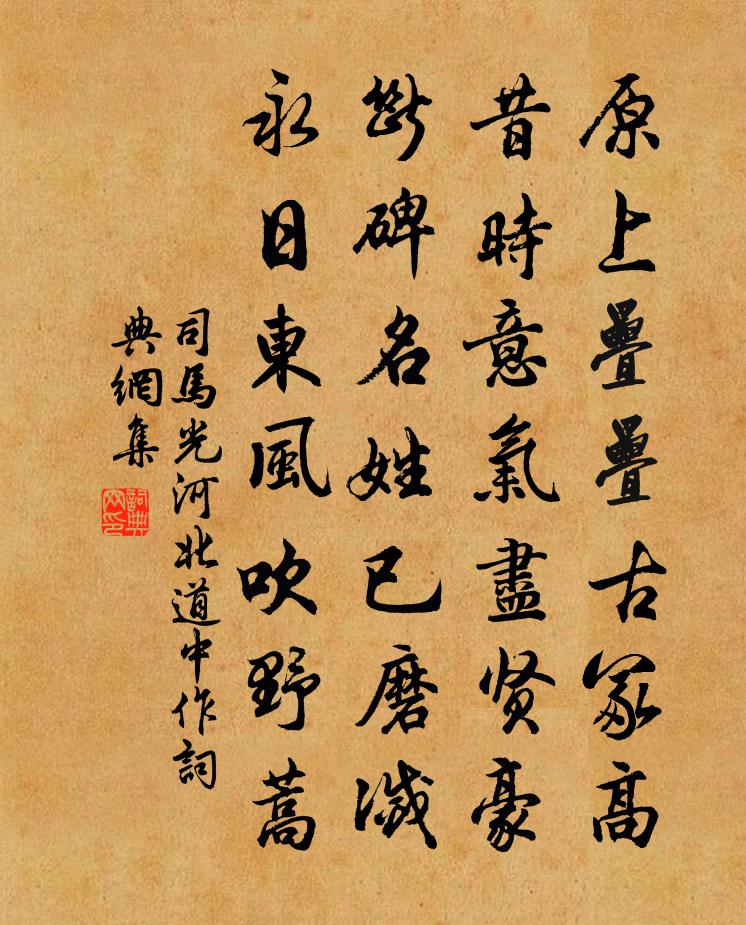 原上疊疊古冢高
昔時意氣盡賢豪
斷碑名姓已磨滅
永日東風吹野蒿
司馬光河北道中作詞
典網集
詞典
网印